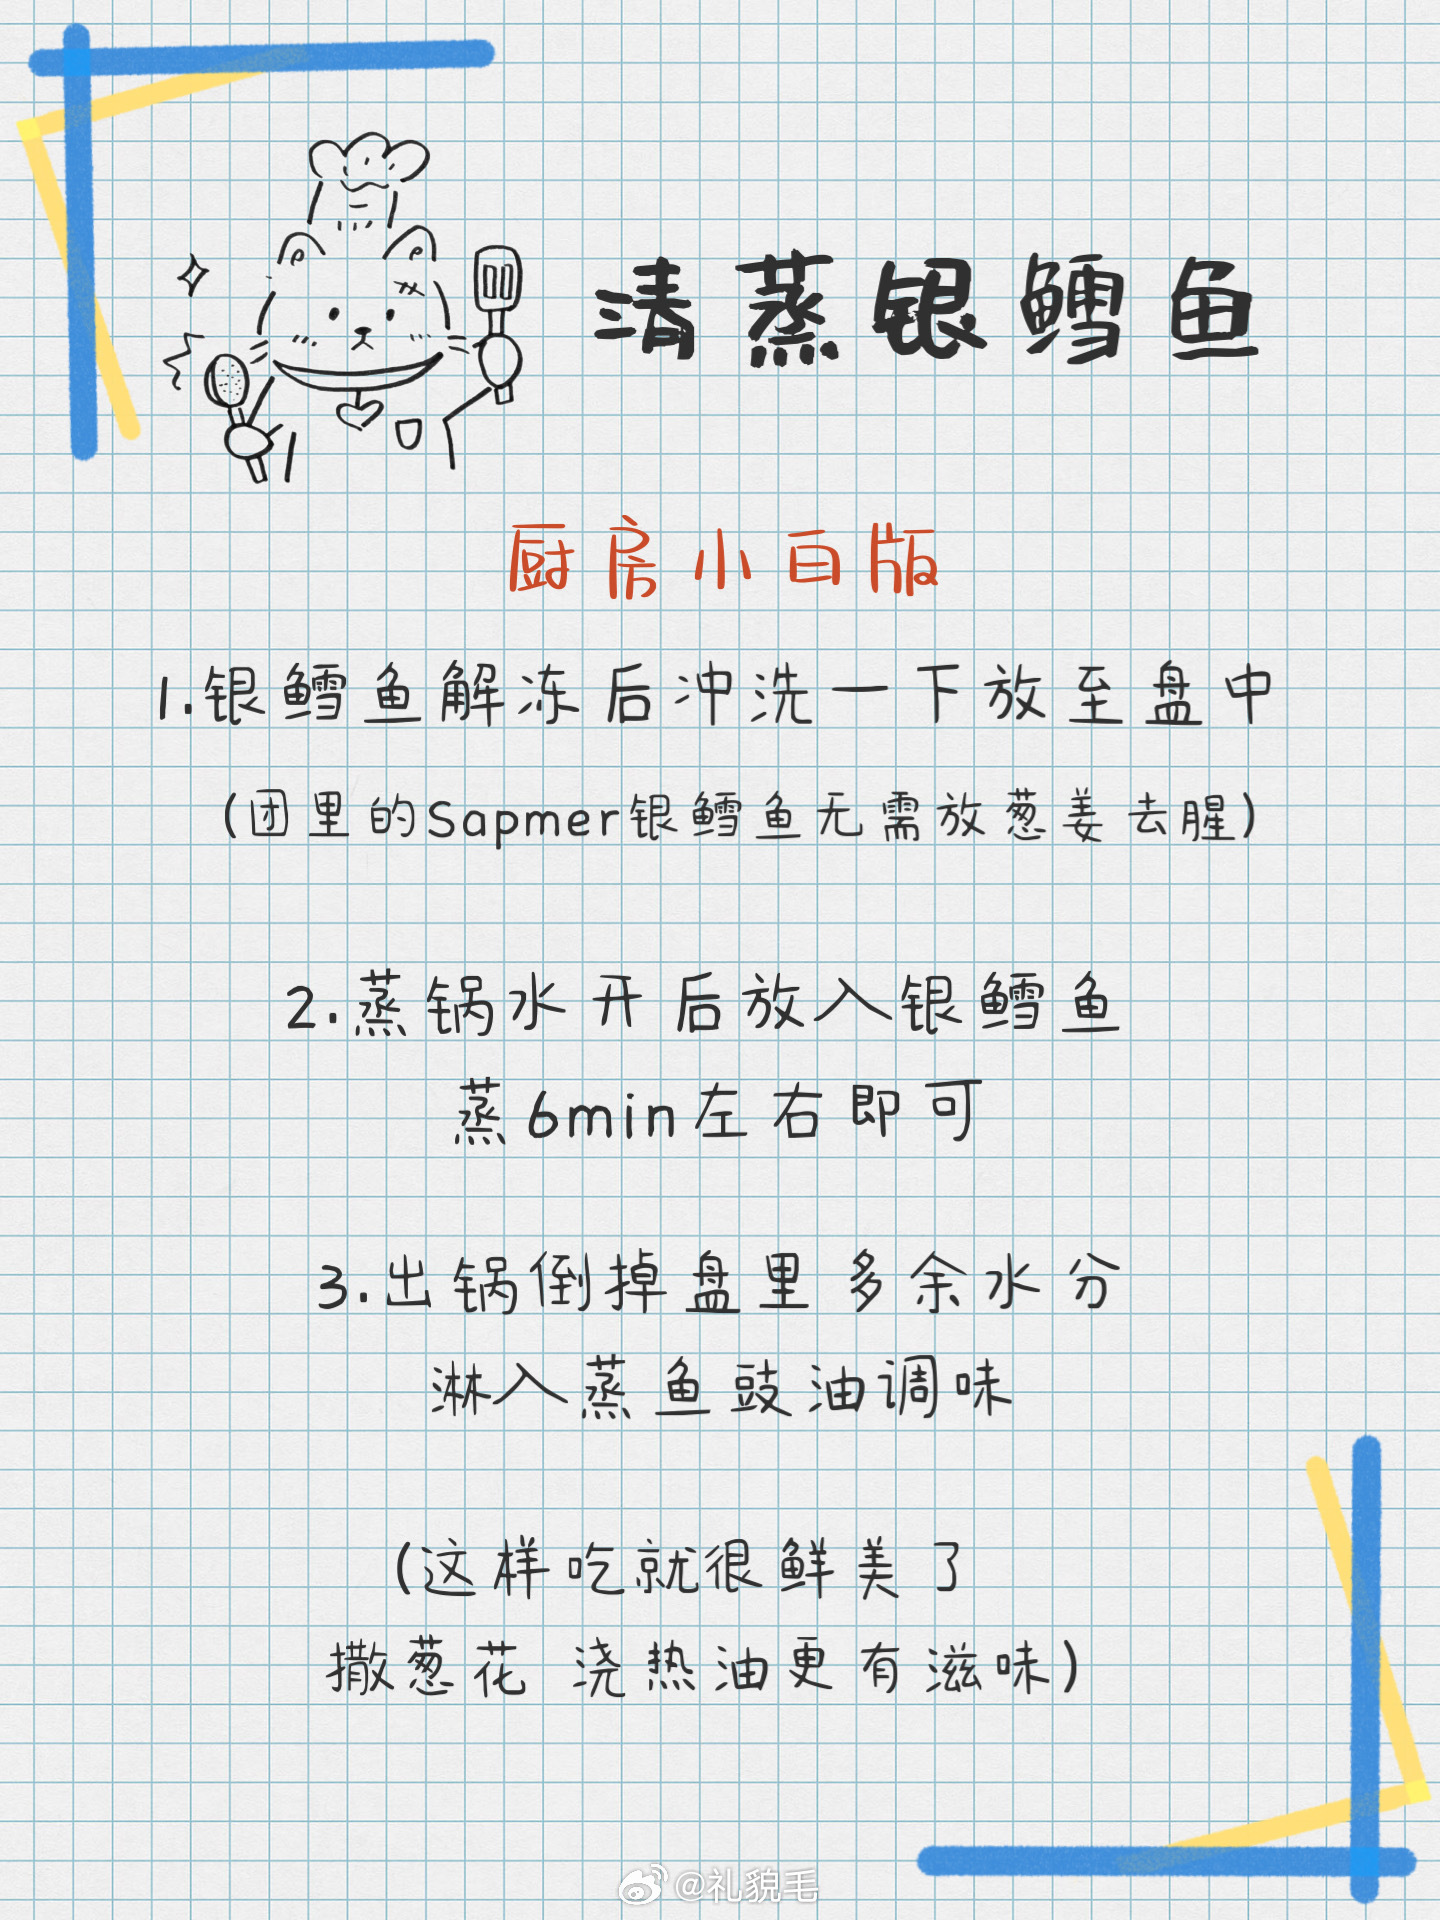 清蒸银鳕鱼
厨房小白版
1.银鳕鱼解冻后冲洗一下放至盘中
(团里的Sapmer银鳕鱼无需放葱姜去腥)
2.蒸锅水开后放入银鳕鱼
蒸6min左右即可
3.出锅倒掉盘里多余水分
淋入蒸鱼豉油调味
(这样吃就很鲜美了
撒葱花 浇热油更有滋味)
@礼貌毛